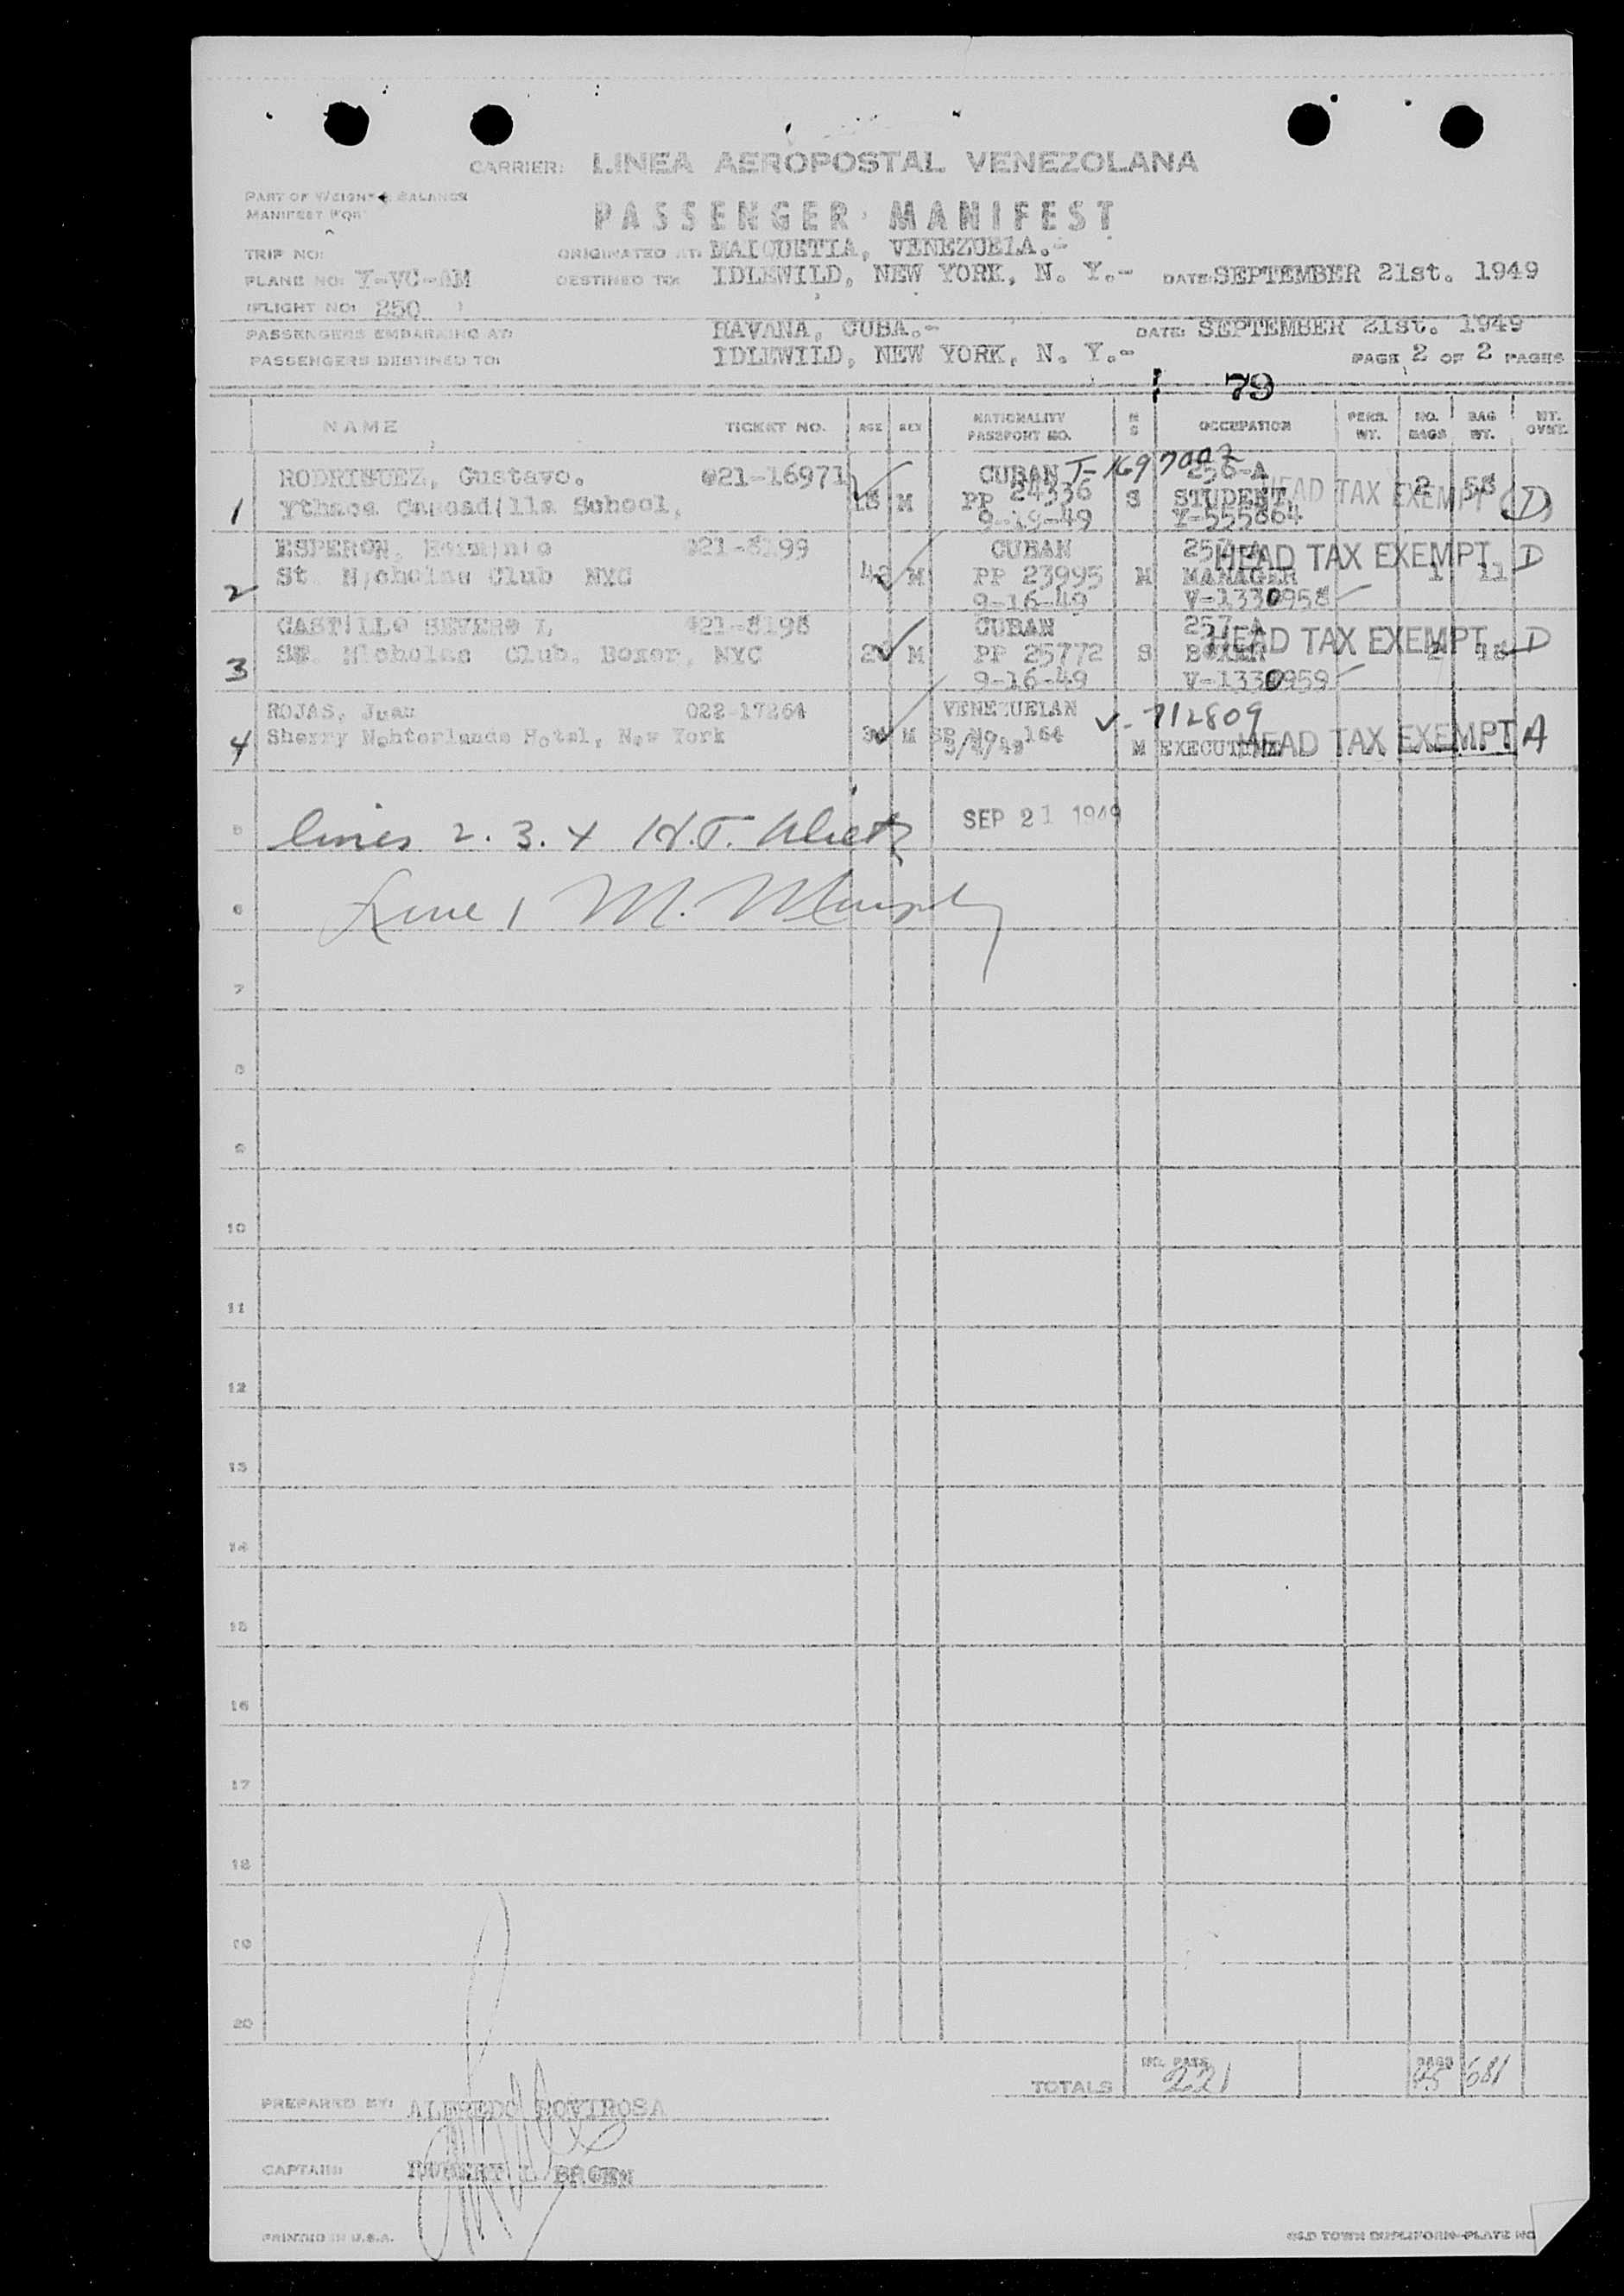 CARRIER: LINEA AEROPOSTAL VENEZOLANA
PART OF WEIGHT & BALANCE
MANIFEST FOR
PASSENGER MANIFEST
TRIP NO: ORIGINATED AT: MAIQUETIA, VENEZUELA.-
PLANE NO: Y-VC-AM DESTINED TO: IDLEWILD, NEW YORK, N. Y.- DATE: SEPTEMBER 21st. 1949
FLIGHT NO: 250
PASSENGERS EMBARKING AT: HAVANA, CUBA.- DATE: SEPTEMBER 21st. 1949
PASSENGERS DESTINED TO: IDLEWILD, NEW YORK, N. Y.- PAGE 2 OF 2 PAGES
79
NAME TICKET NO. AGE SEX NATIONALITY PASSPORT NO. M S OCCUPATION PERS. WT. NO. BAGS BAG WT. WT. OVWT.
RODRIGUEZ, Gustavo. 021-16971 CUBAN T-1697007 256-A
1 Ythaca Cascadilla School, M PP 24336 S STUDENT HEAD TAX EXEMPT 2 55 (D)
9-19-49 V-555664
ESPERON, Herminio 021-8199 CUBAN 257-A HEAD TAX EXEMPT D
2 St Nicholas Club NYC 42 M PP 23995 M MANAGER 1 11
9-16-49 V-1330958
CASTILLO SEVERO L 021-8198 CUBAN 257-A HEAD TAX EXEMPT D
3 St. Nicholas Club. Boxer, NYC M PP 25772 S BOXER
9-16-49 V-1330959
ROJAS, Juan 022-17264 VENEZUELAN V-712809
4 Sherry Nehterlands Hotel, New York M 164 M EXECUTIVE HEAD TAX EXEMPT A
5 lines 2. 3. 4 H.T. SEP 21 1949
6 Line 1 M. Murphy
7
8
9
10
11
12
13
14
15
16
17
18
19
20
TOTALS NO. PASS. 221 BAGS 45 681
PREPARED BY: ALFREDO ROVIROSA
CAPTAIN: ROBERT L
PRINTED IN U.S.A. OLD TOWN DUPLIFORM-PLATE NO